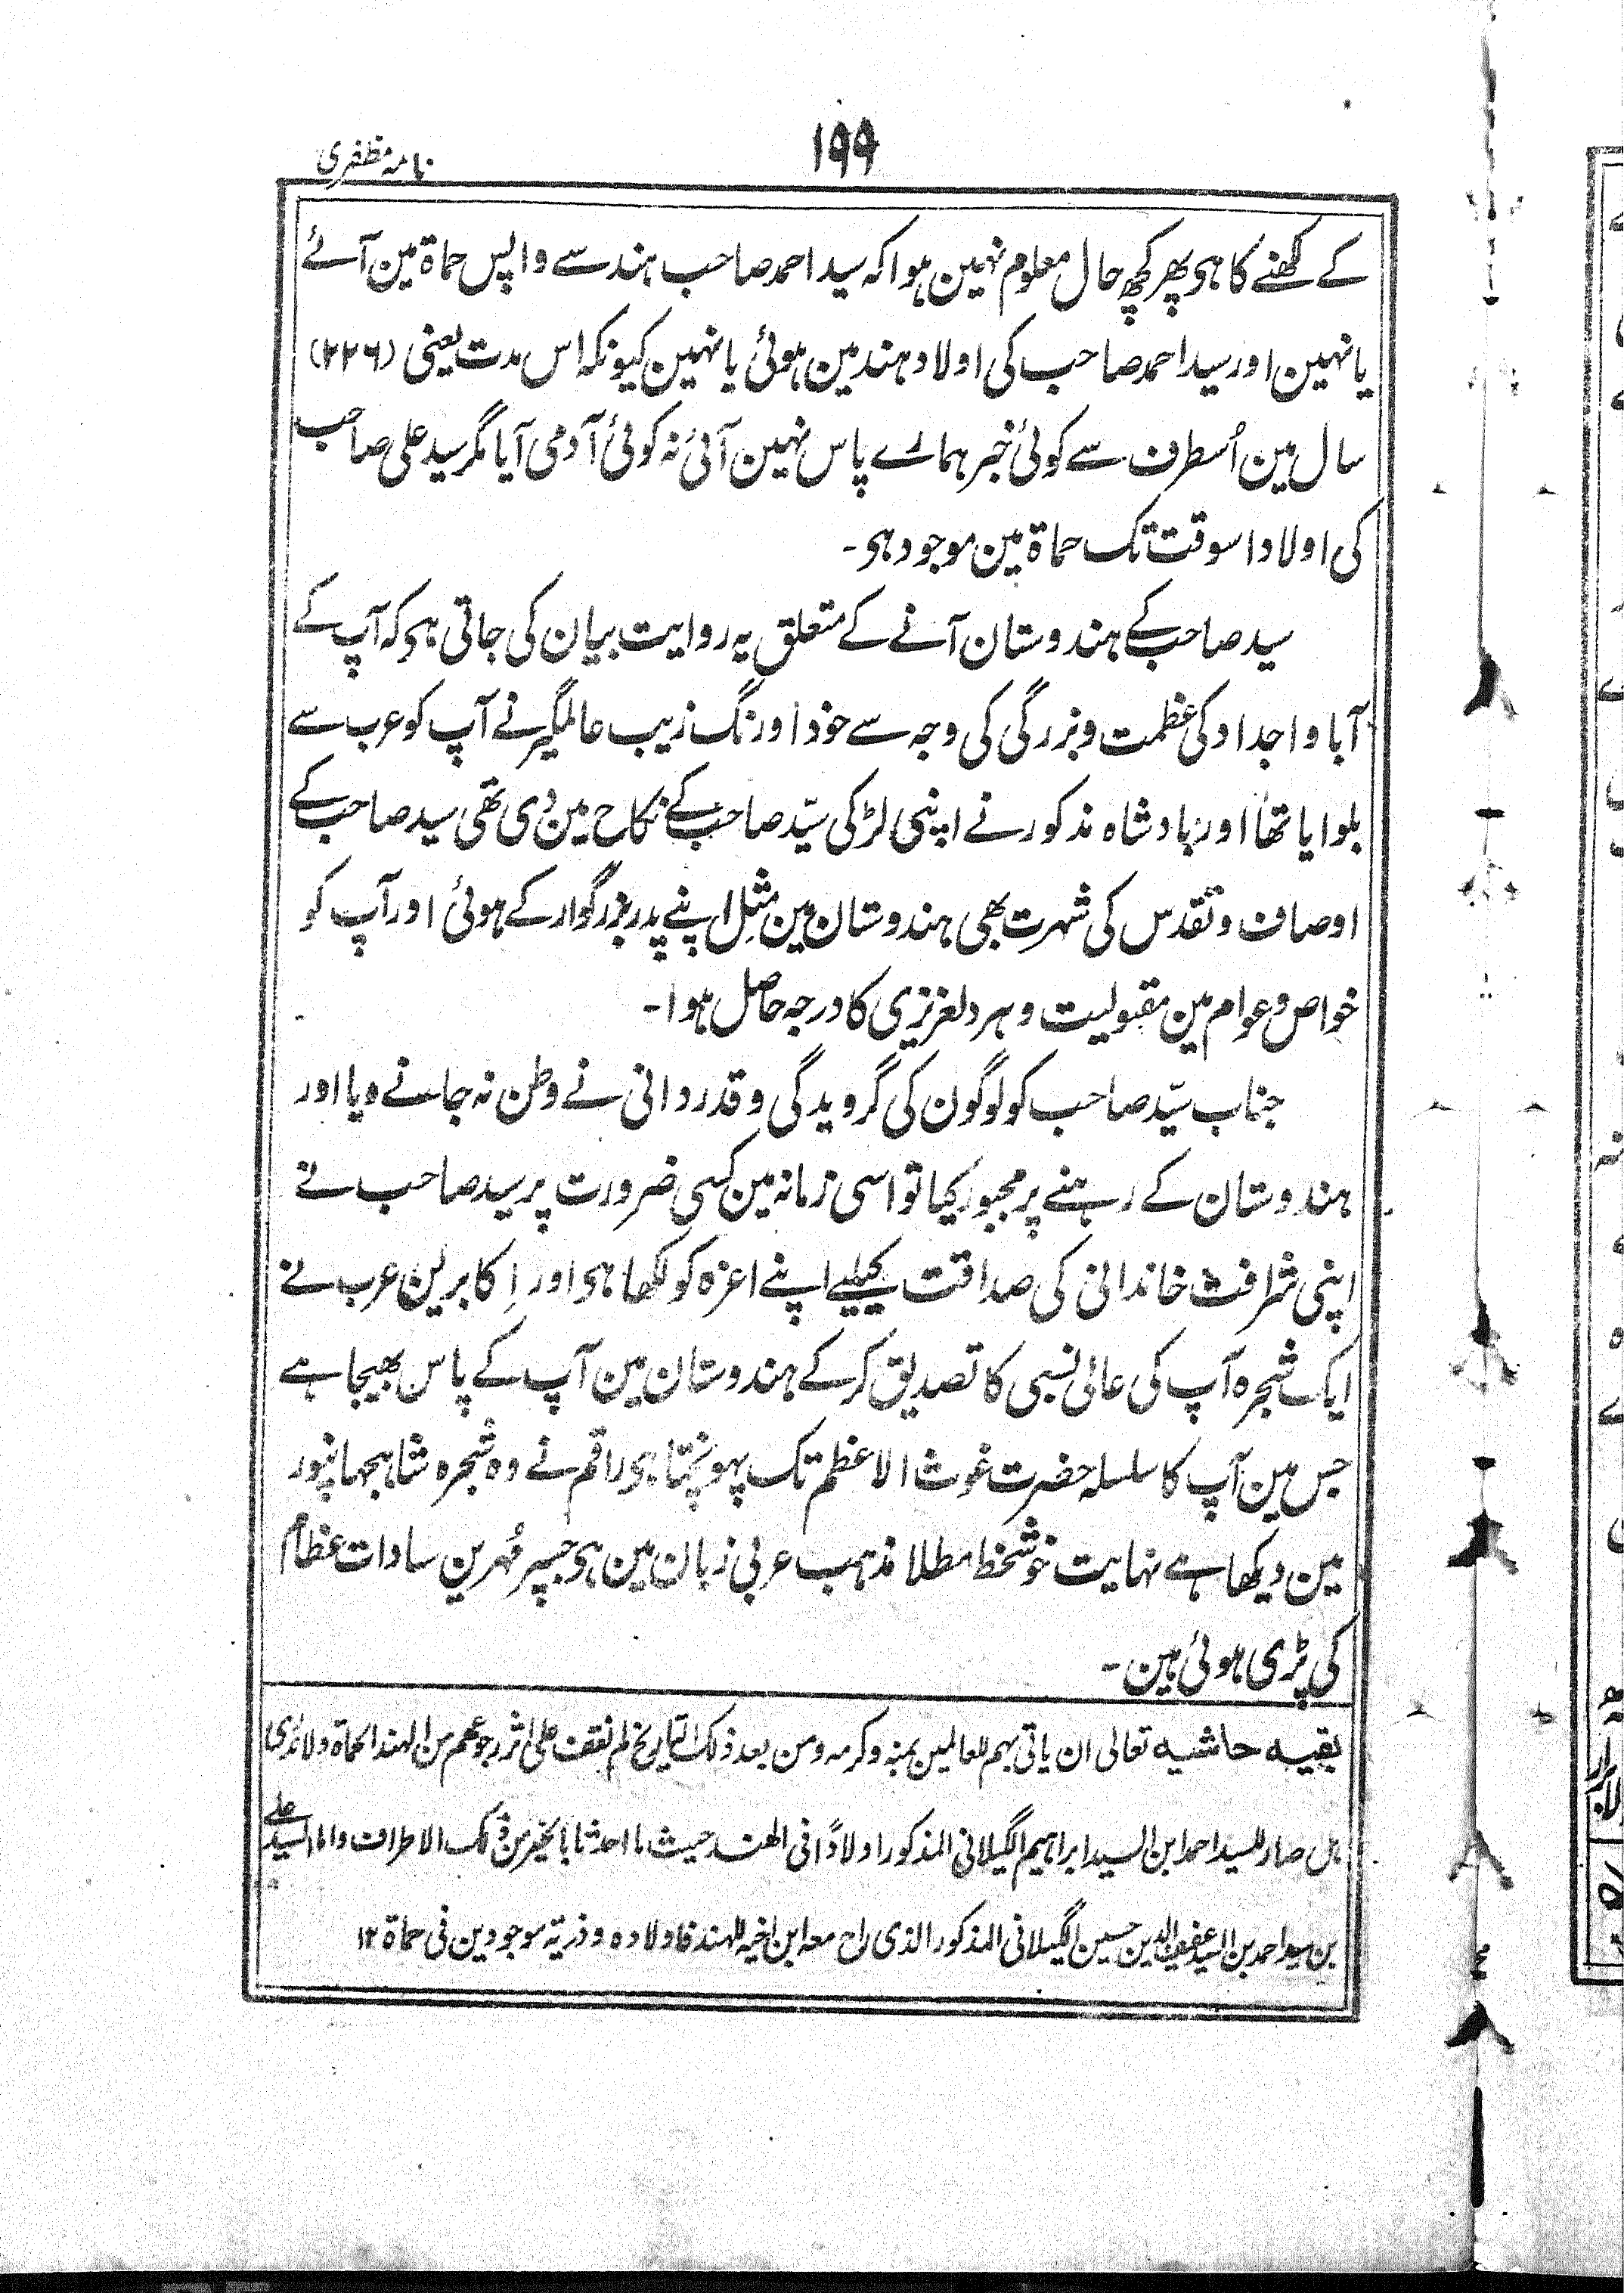 ۱۹۹
نامہ مظفری
کے لکھنے کا ہی پھر کچھ حال معلوم نہین ہوا کہ سید احمد صاحب ہند سے واپس حماۃ مین آئے
یا نہین اور سید احمد صاحب کی اولاد ہند مین ہوئی یا نہین کیونکہ اس مدت یعنی (۲۲۶)
سال مین اُسطرف سے کوئی خبر ہمارے پاس نہین آئی نہ کوئی آدمی آیا مگر سید علی صاحب
کی اولاد اسوقت تک حماۃ مین موجود ہی۔
سید صاحب کے ہندوستان آنے کے متعلق یہ روایت بیان کی جاتی ہی کہ آپ کے
آبا و اجداد کی عظمت و بزرگی کی وجہ سے خود اورنگ زیب عالمگیر نے آپ کو عرب سے
بلوایا تھا اور بادشاہ مذکور نے اپنی لڑکی سیّد صاحب کے نکاح مین دی تھی سید صاحب کے
اوصاف و تقدس کی شہرت بھی ہندوستان مین مثل اپنے پدر بزرگوار کے ہوئی اور آپ کو
خواص و عوام مین مقبولیت و ہر دلعزیزی کا درجہ حاصل ہوا۔
جناب سیّد صاحب کو لوگون کی گرویدگی و قدردانی نے وطن نہ جانے دیا اور
ہندوستان کے رہنے پر مجبور کیا تو اسی زمانہ مین کسی ضرورت پر سید صاحب نے
اپنی شرافت خاندانی کی صداقت کیلیے اپنے اعزہ کو لکھا ہی اور اکابرین عرب نے
ایک شجرہ آپ کی عالی نسبی کا تصدیق کر کے ہندوستان مین آپ کے پاس بھیجا ہے
جس مین آپ کا سلسلہ حضرت غوث الاعظم تک پہونچتا ہی راقم نے وہ شجرہ شاہجہانپور
مین دیکھا ہے نہایت خوشخط مطلا مذہب عربی زبان مین ہی جسپر مُہرین سادات عظام
کی پڑی ہوئی ہین۔
بقیہ حاشیہ تعالی ان یاتی بہم للعالمین بمنہ وکرمہ ومن بعد ذلک التاریخ لم نقف علی اثر رجوعہم من الہند الحماۃ ولا ندری
ہل صار للسید احمد ابن السید ابراہیم الگیلانی المذکور اولاداً فی الہند حیث ما احد اتانا بالخبر من ذلک الاطراف واما السید علی
بن سید احمد بن السید عفیف الدین حسین الگیلانی المذکور الذی راح معہ ابن اخیہ للہند فاولادہ وذریۃ موجودین فی حماۃ ۱۲